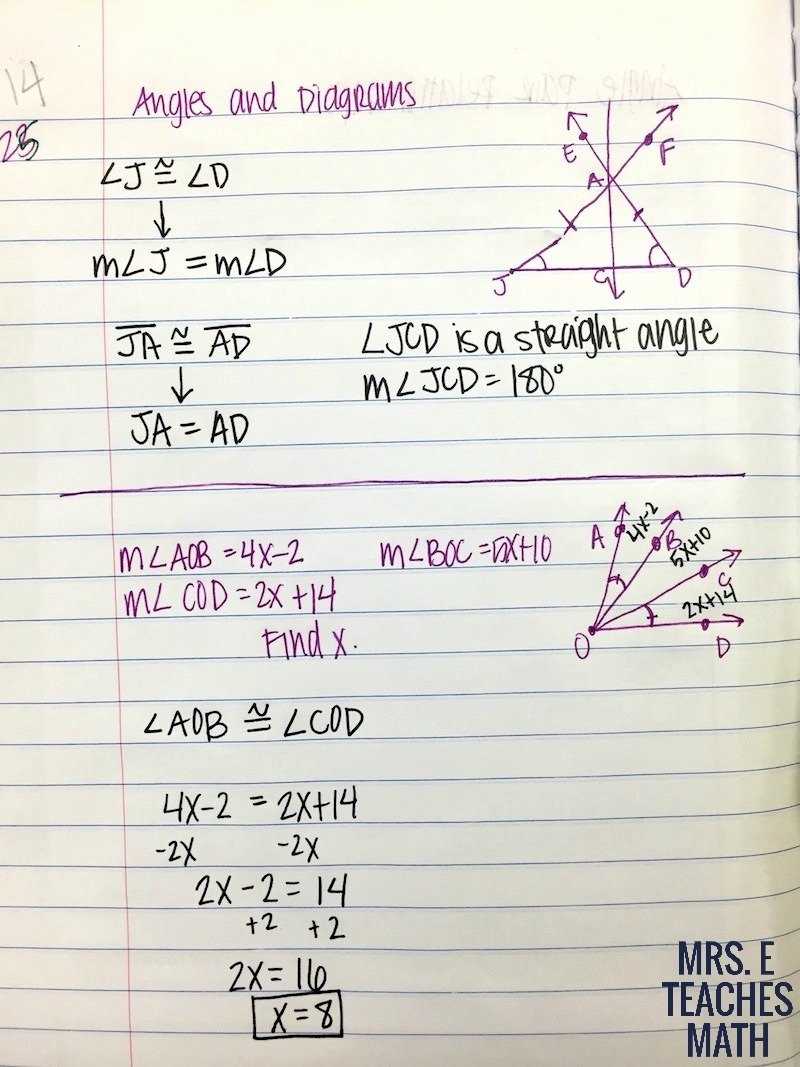 14
Angles and Diagrams
28
E
F
A
∠J ≅ ∠D
↓
m∠J = m∠D
J
C
D
JA ≅ AD
∠JCD is a straight angle
↓
m∠JCD = 180°
JA = AD
m∠AOB = 4x-2
m∠BOC = 5x+10
m∠COD = 2x+14
Find x.
A
4x-2
B
5x+10
C
2x+14
O
D
∠AOB ≅ ∠COD
4x-2 = 2x+14
-2x -2x
2x-2 = 14
+2 +2
2x = 16
x = 8
MRS. E
TEACHES
MATH